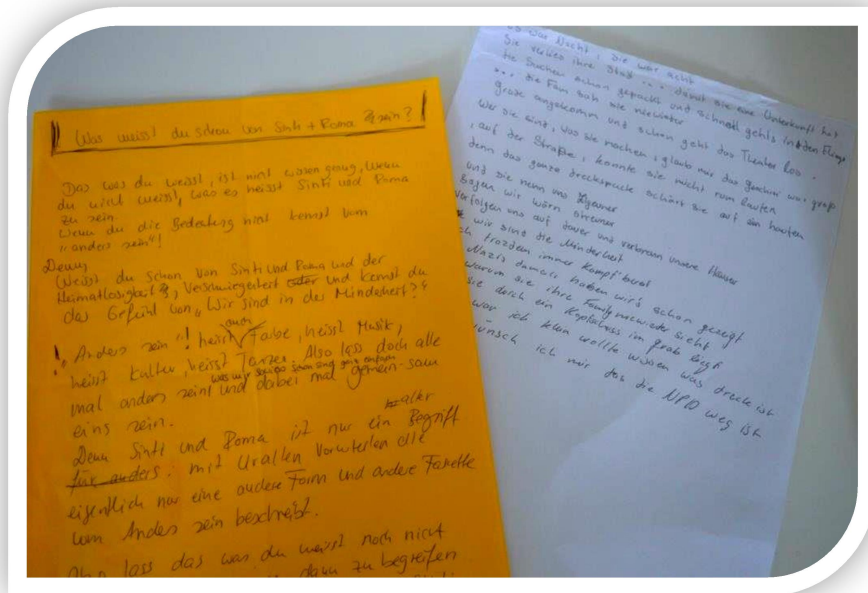 Was weisst du schon von Sinti + Roma sein?
Das was du weisst, ist nicht wissen genug, wenn
du nicht weisst, was es heisst Sinti und Roma
zu sein.
Wenn du die Bedeutung nicht kennst vom
"anders sein"!
Denn,
Weisst du schon von Sinti und Roma und der
Heimatlosigkeit, Verschwiegenheit oder und kennst du
das Gefühl von, "Wir sind in der Minderheit?"
! "Anders sein"! heisst auch Farbe, heisst Musik,
heisst Kultur, heisst Tanzen. Also lass doch alle
was wir sowieso schon sind ganz einfach
mal anders sein! und dabei mal gemein-sam
eins sein.
Denn Sinti und Roma ist nur ein alter Begriff
für anders: mit Uralten Vorurteilen die
eigentlich nur eine andere Form und andere Facette
vom Anders sein beschreibt.
Also lass das was du weisst noch nicht
dann zu begreifen
war Nacht, sie war acht
Sie verlies ihre Stadt ... damit sie eine Unterkunft hat
die Sachen schon gepackt und schnell gehts in den Flieger
... die Fam sah sie nie wieder
grade angekomm und schon geht das Theater los.
Wer sie sind, was sie machen, glaub mir das geschrei war groß
, auf der Straße, konnte sie nicht rum laufen
denn das ganze dreckspack schärt sie auf ein haufen
und sie nenn uns Zigeuner
sagen wir wärn streuner
verfolgen uns auf dauer und verbrenn unsere Häuser
wir sind die Minderheit
trozdem immer Kampf bereit
Nazis damals haben wir's schon gezeigt
warum sie ihre Family nie wieder sieht
sie durch ein Kopfschuss im grab liegt
war ich klein wollte wissen was dreck ist
wünsch ich mir das die NPD weg ist